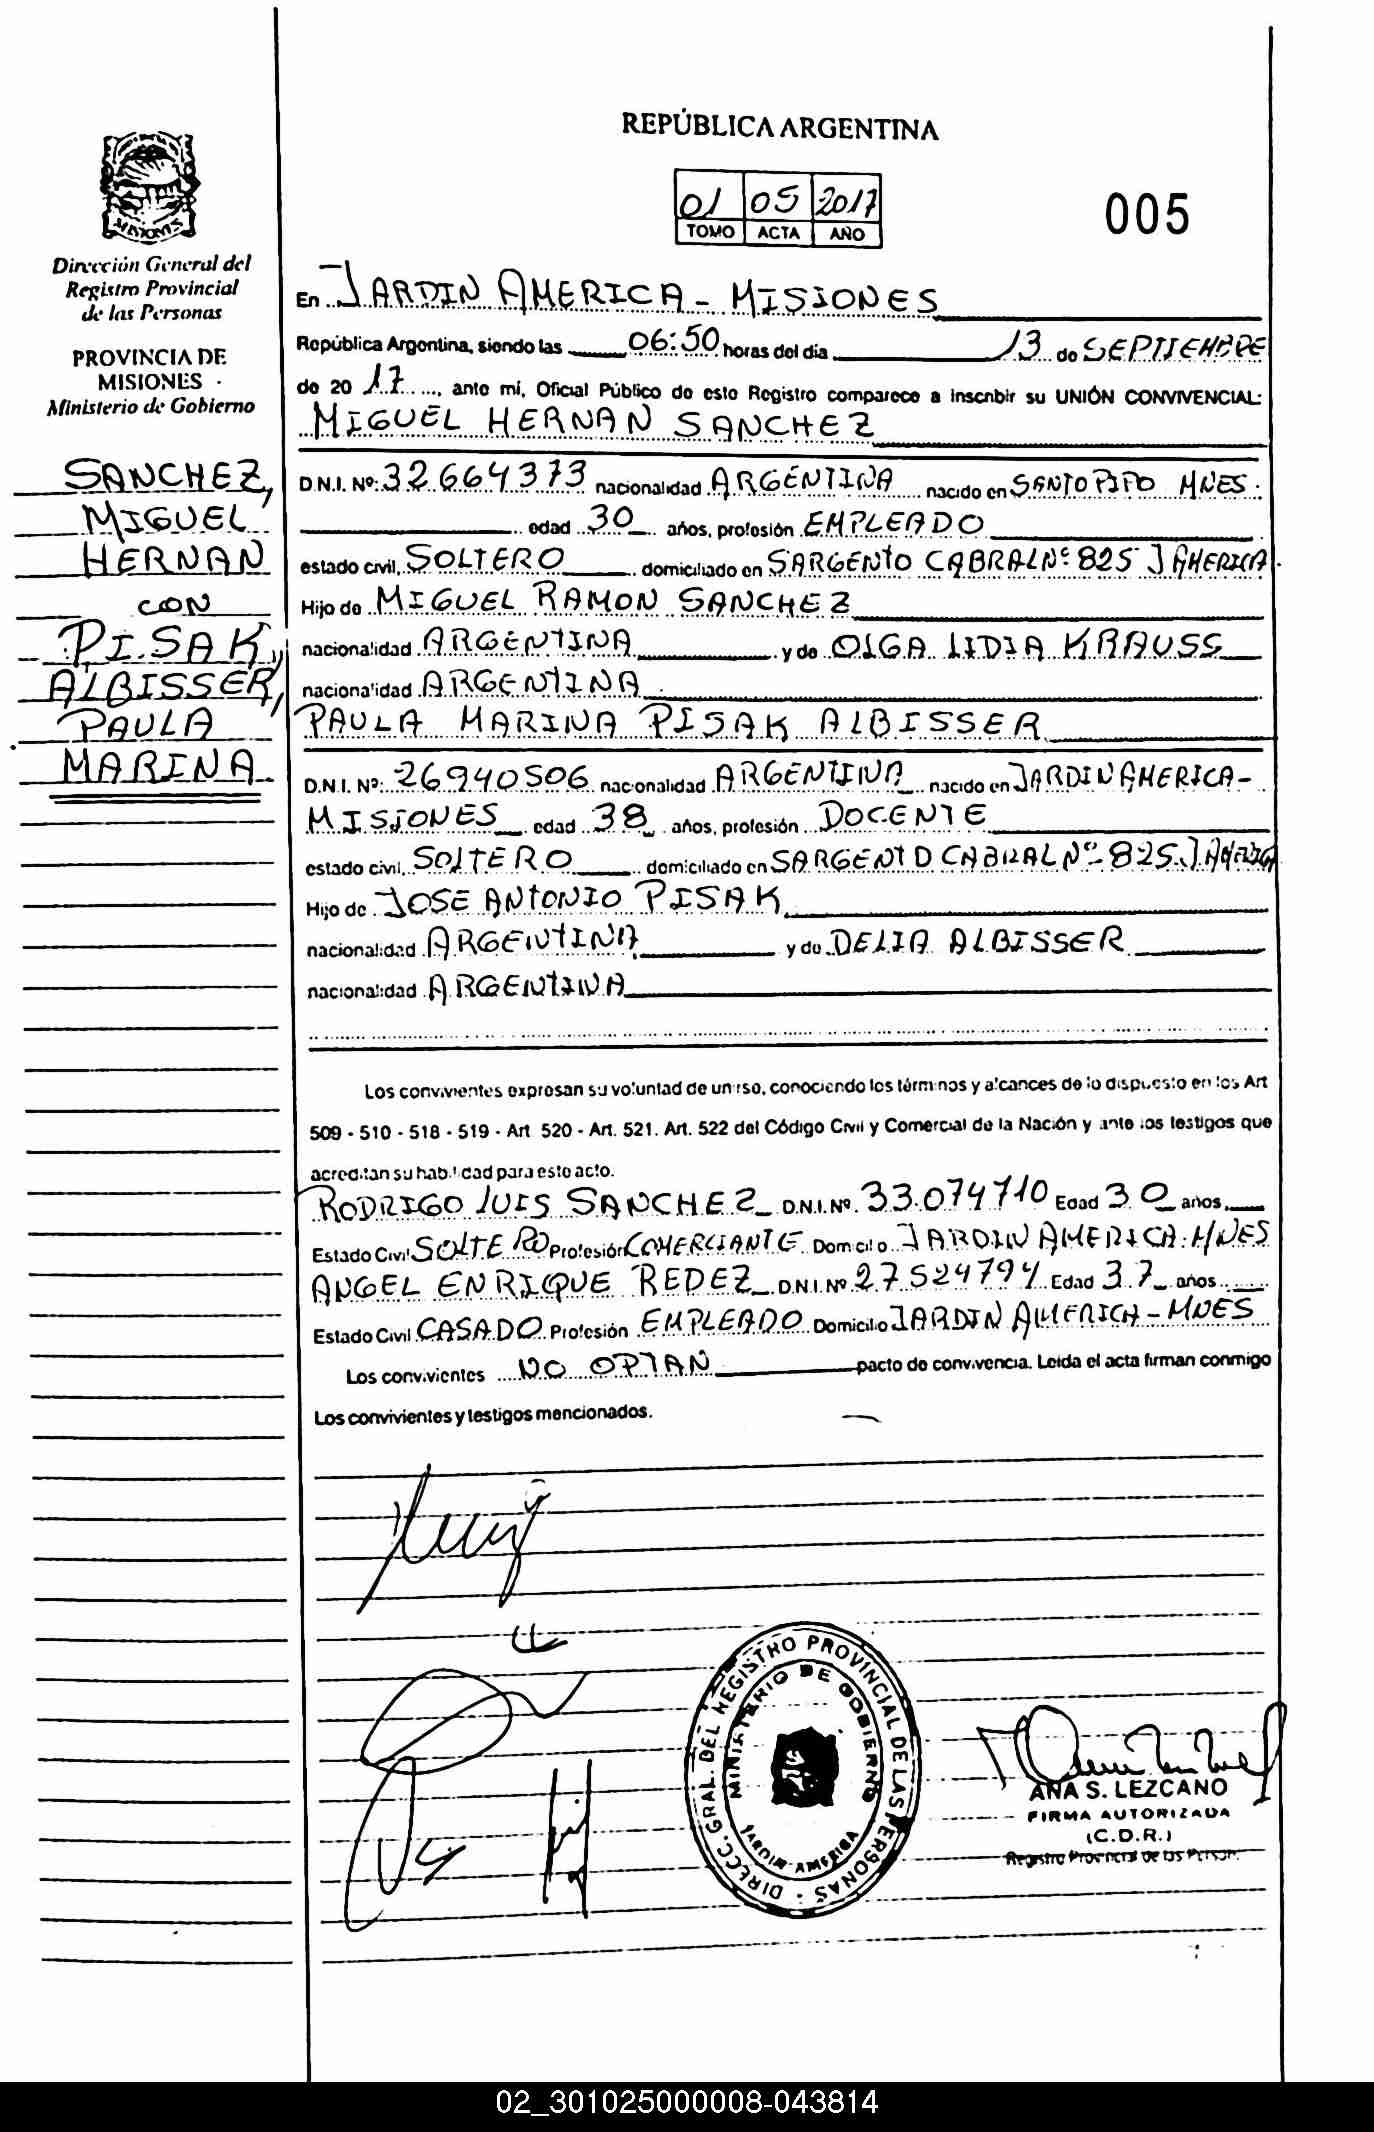 REPÚBLICA ARGENTINA
01 05 2017
TOMO ACTA AÑO
005
MISIONES
Dirección General del
Registro Provincial
de las Personas
PROVINCIA DE
MISIONES
Ministerio de Gobierno
SANCHEZ,
MIGUEL
HERNAN
CON
PISAK
ALBISSER,
PAULA
MARINA
En JARDIN AMERICA - MISIONES
República Argentina, siendo las 06:50 horas del día 13 de SEPTIEMBRE
de 20 17, ante mí, Oficial Público de este Registro comparece a inscribir su UNIÓN CONVIVENCIAL:
MIGUEL HERNAN SANCHEZ
D.N.I. Nº: 32.664373 nacionalidad ARGENTINA nacido en SANTO PIPO MNES.
edad 30 años, profesión EMPLEADO
estado civil, SOLTERO domiciliado en SARGENTO CABRAL Nº 825 J AMERICA.
Hijo de MIGUEL RAMON SANCHEZ
nacionalidad ARGENTINA y de OLGA LIDIA KRAUSS
nacionalidad ARGENTINA
PAULA MARINA PISAK ALBISSER
D.N.I. Nº: 26940506 nacionalidad ARGENTINA nacido en JARDIN AMERICA -
MISIONES edad 38 años, profesión DOCENTE
estado civil, SOLTERO domiciliado en SARGENTO CABRAL Nº 825 J. AMERICA
Hijo de JOSE ANTONIO PISAK
nacionalidad ARGENTINA y de DELIA ALBISSER
nacionalidad ARGENTINA
Los convivientes expresan su voluntad de unirse, conociendo los términos y alcances de lo dispuesto en los Art
509 - 510 - 518 - 519 - Art 520 - Art. 521. Art. 522 del Código Civil y Comercial de la Nación y ante los testigos que
acreditan su habilidad para este acto.
RODRIGO LUIS SANCHEZ D.N.I. Nº 33.074710 Edad 30 años,
Estado Civil SOLTERO Profesión COMERCIANTE Domicilio JARDIN AMERICA. MNES
ANGEL ENRIQUE REDEZ D.N.I. Nº 27524794 Edad 37 años
Estado Civil CASADO Profesión EMPLEADO Domicilio JARDIN AMERICA - MNES
Los convivientes NO OPTAN pacto de convivencia. Leída el acta firman conmigo
Los convivientes y testigos mencionados.
DIRECC. GRAL. DEL REGISTRO PROVINCIAL DE LAS PERSONAS
MINISTERIO DE GOBIERNO
JARDIN AMERICA
ANA S. LEZCANO
FIRMA AUTORIZADA
(C.D.R.)
Registro Provincial de las Person.
02_301025000008-043814